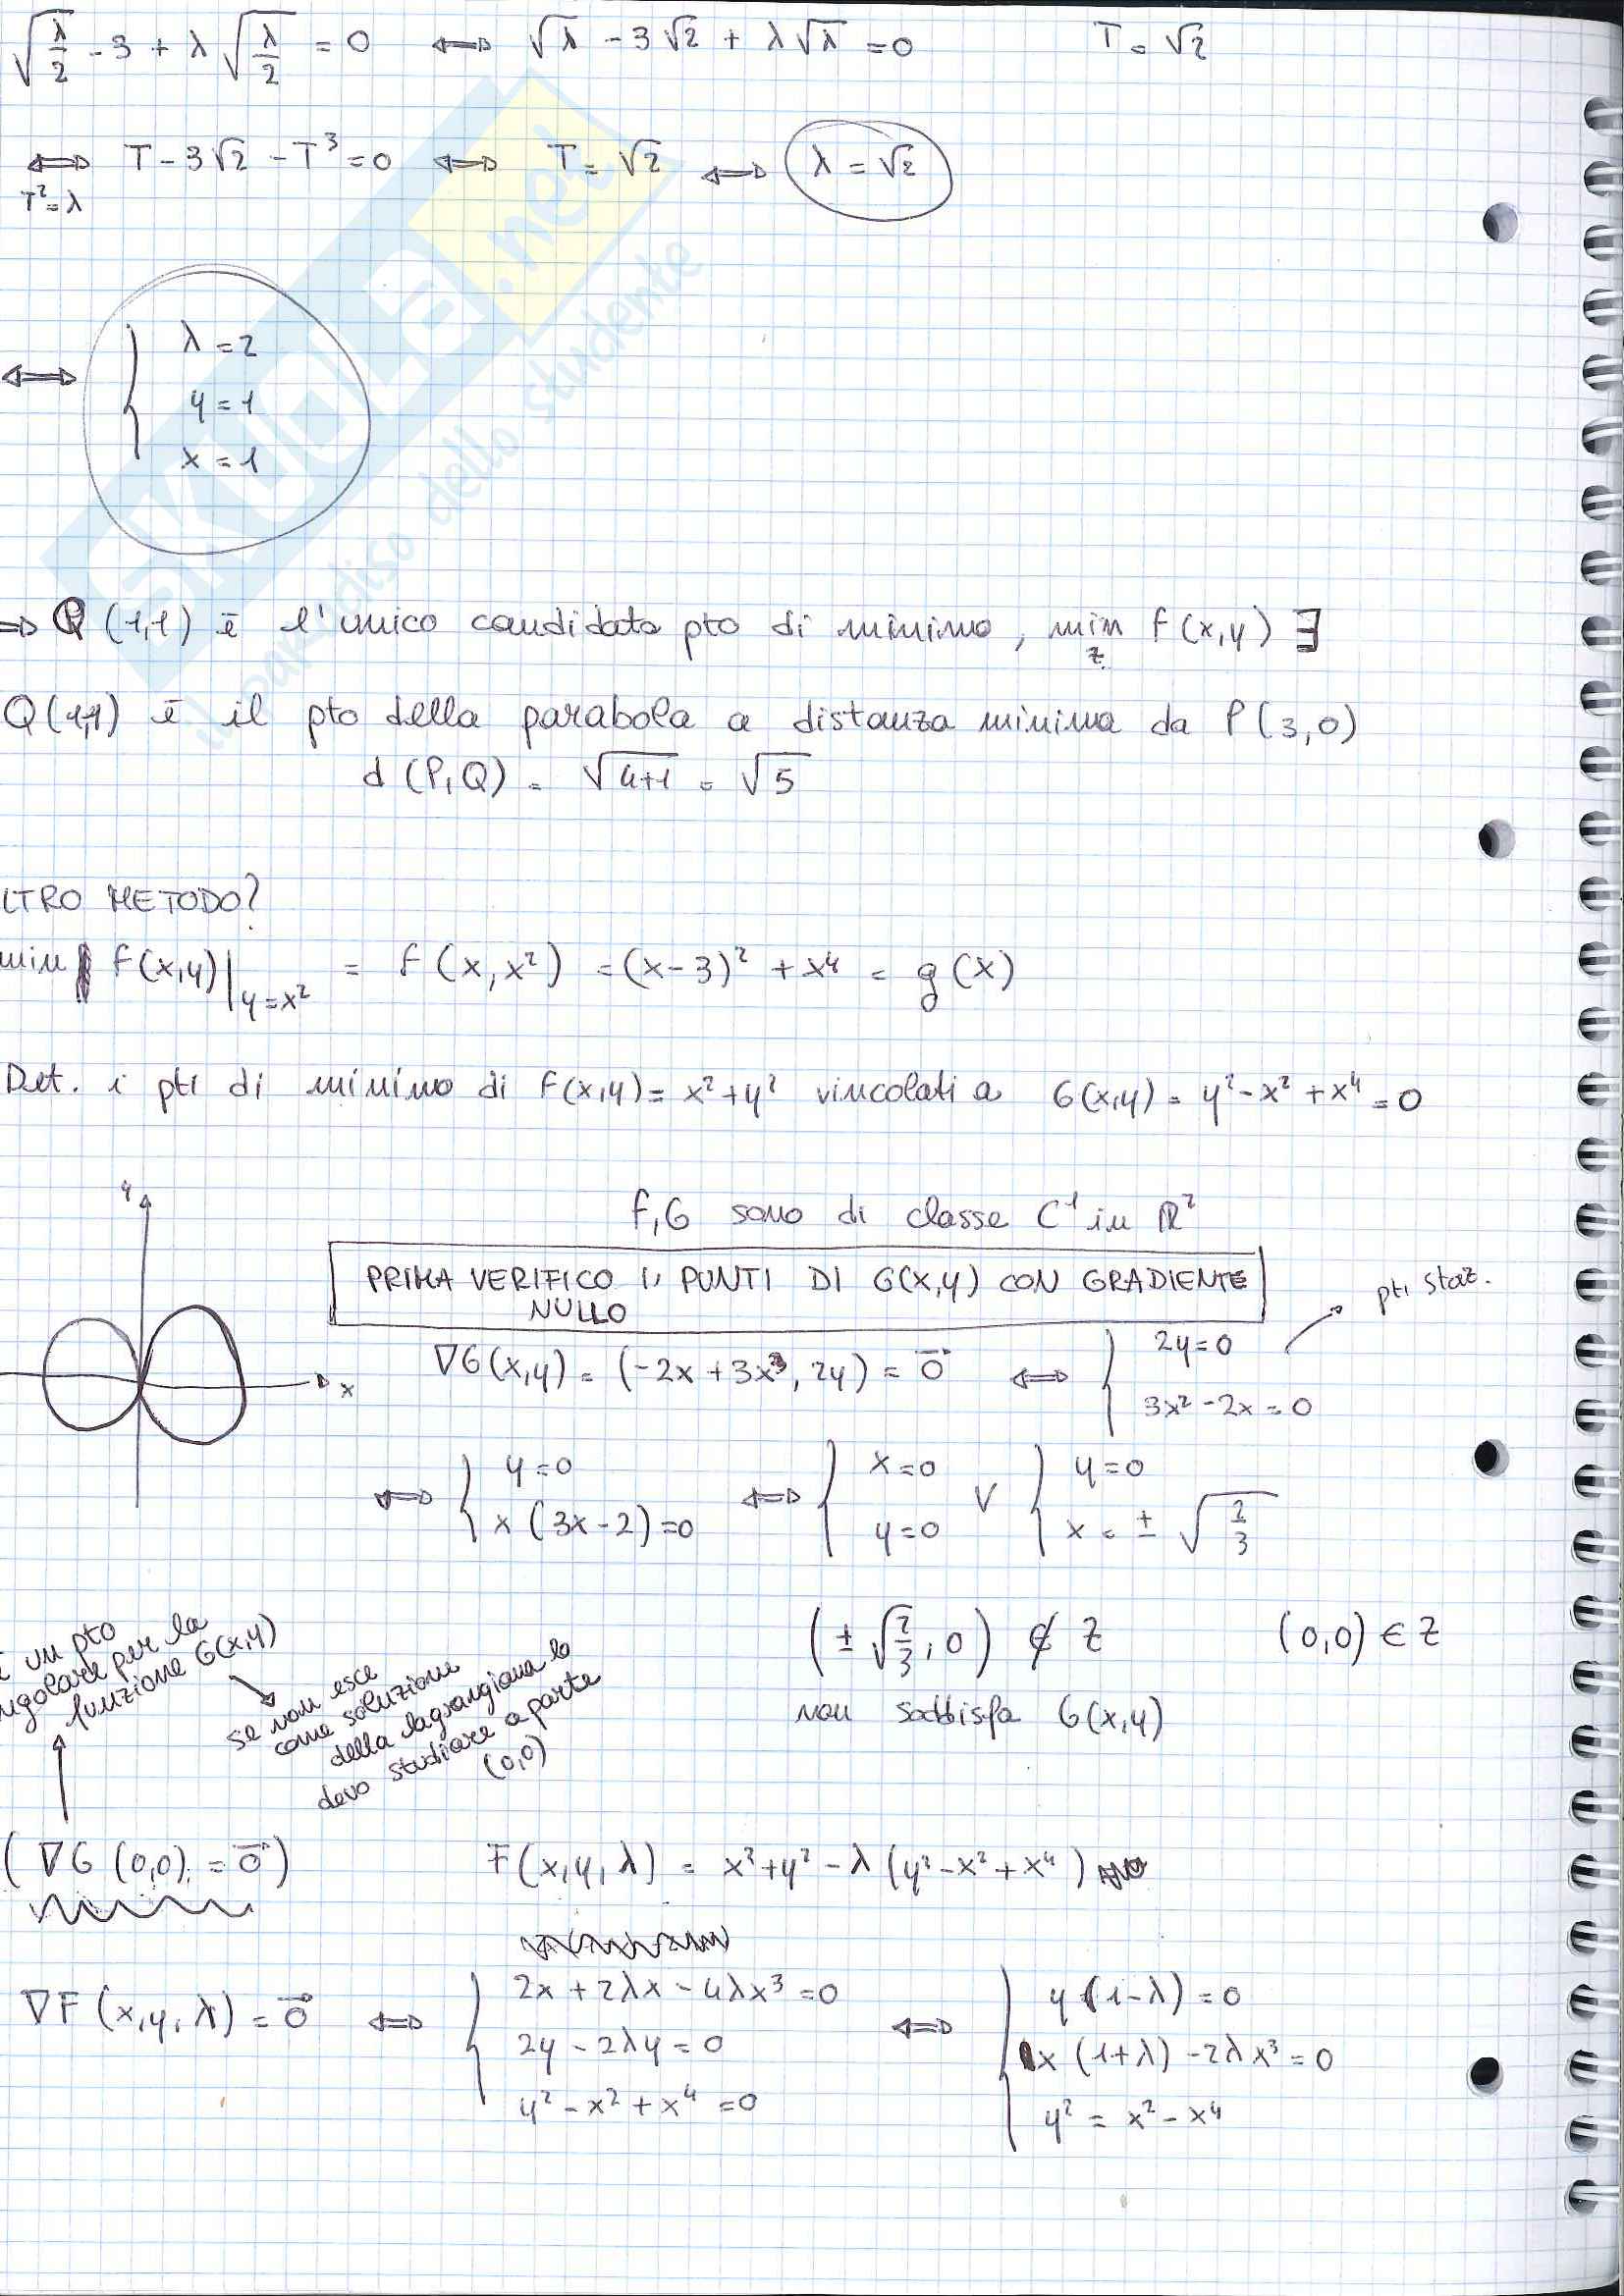 √(λ/2) - 3 + λ √(λ/2) = 0 ⇔ √λ - 3√2 + λ√λ = 0 T = √2
⇔ T - 3√2 - T³ = 0 ⇔ T = √2 ⇔ λ = √2
T² = λ
⇔ { λ = 2
y = 1
x = 1
⇒ Q (1,1) è l'unico candidato pto di minimo, min f(x,y) ∃
z
Q(1,1) è il pto della parabola a distanza minima da P(3,0)
d(P,Q) = √4+1 = √5
LTRO METODO?
min f(x,y)|y=x² = f(x,x²) = (x-3)² + x⁴ = g(x)
Det. i pti di minimo di f(x,y) = x²+y² vincolati a G(x,y) = y²-x²+x⁴ = 0
y
x
f,G sono di classe C¹ in ℝ²
PRIMA VERIFICO I PUNTI DI G(x,y) CON GRADIENTE
NULLO
pti staz.
∇G(x,y) = (-2x+3x³, 2y) = 0⃗ ⇔ { 2y = 0
3x² - 2x = 0
⇔ { y = 0
x(3x-2) = 0
⇔ { x = 0
y = 0
∨ { y = 0
x = ± √(2/3)
(± √(2/3), 0) ∉ Z (0,0) ∈ Z
non soddisfa G(x,y)
un pto
ngolare per la
funzione G(x,y)
se non esce
come soluzione
della lagrangiana lo
devo studiare a parte
(0,0)
(∇G(0,0) = 0⃗) F(x,y,λ) = x²+y² - λ(y²-x²+x⁴)
∇F(x,y,λ) = 0⃗ ⇔ { 2x + 2λx - 4λx³ = 0
2y - 2λy = 0
y² - x² + x⁴ = 0
⇔ { y(1-λ) = 0
x(1+λ) - 2λx³ = 0
y² = x² - x⁴
SKUOLA.net
il paradiso dello studente